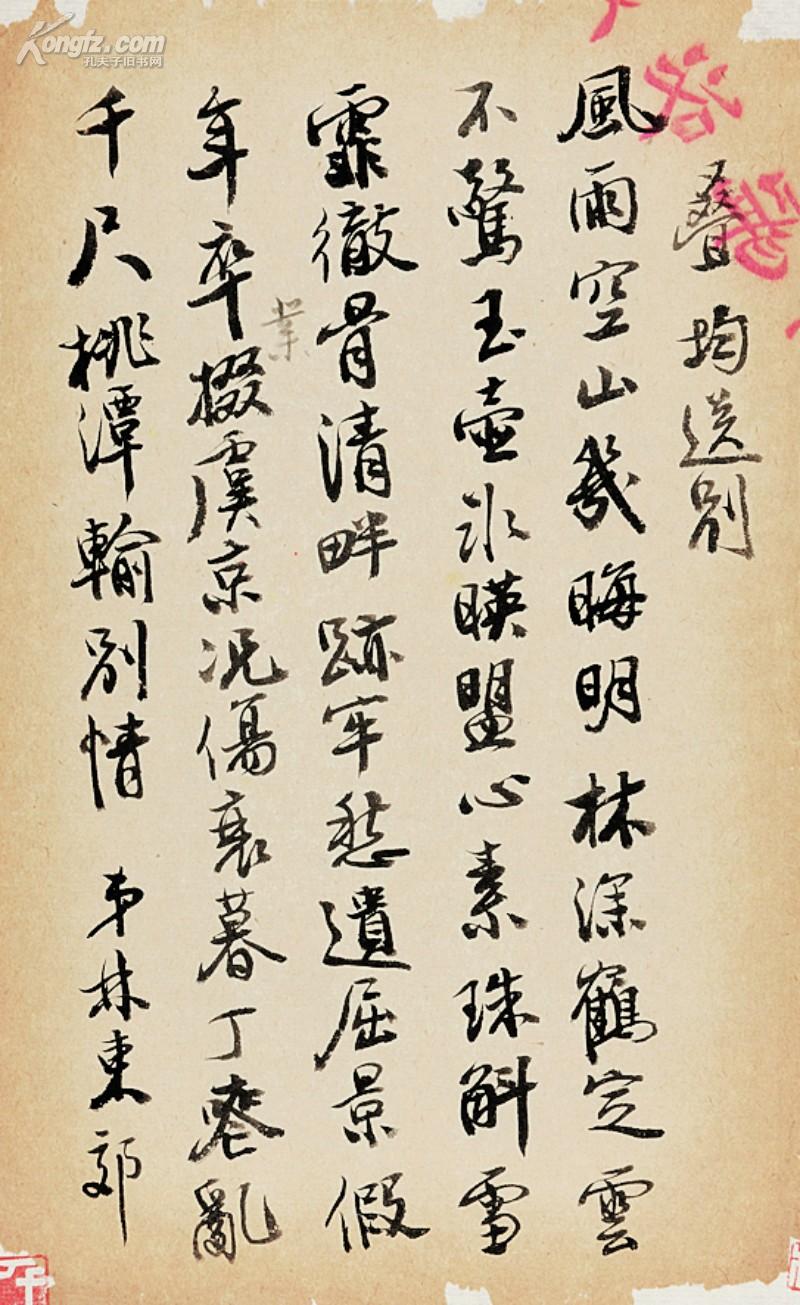 疊均送別
風雨空山幾晦明林深鶴定雲
不驚玉壺冰暎盟心素珠斛雪
霏徹骨清畔跡牢愁遺屈景假
年卒業掇虞京況傷衰暮丁亂
千尺桃潭輸別情 弟林東郊
Kongfz.com
孔夫子旧书网